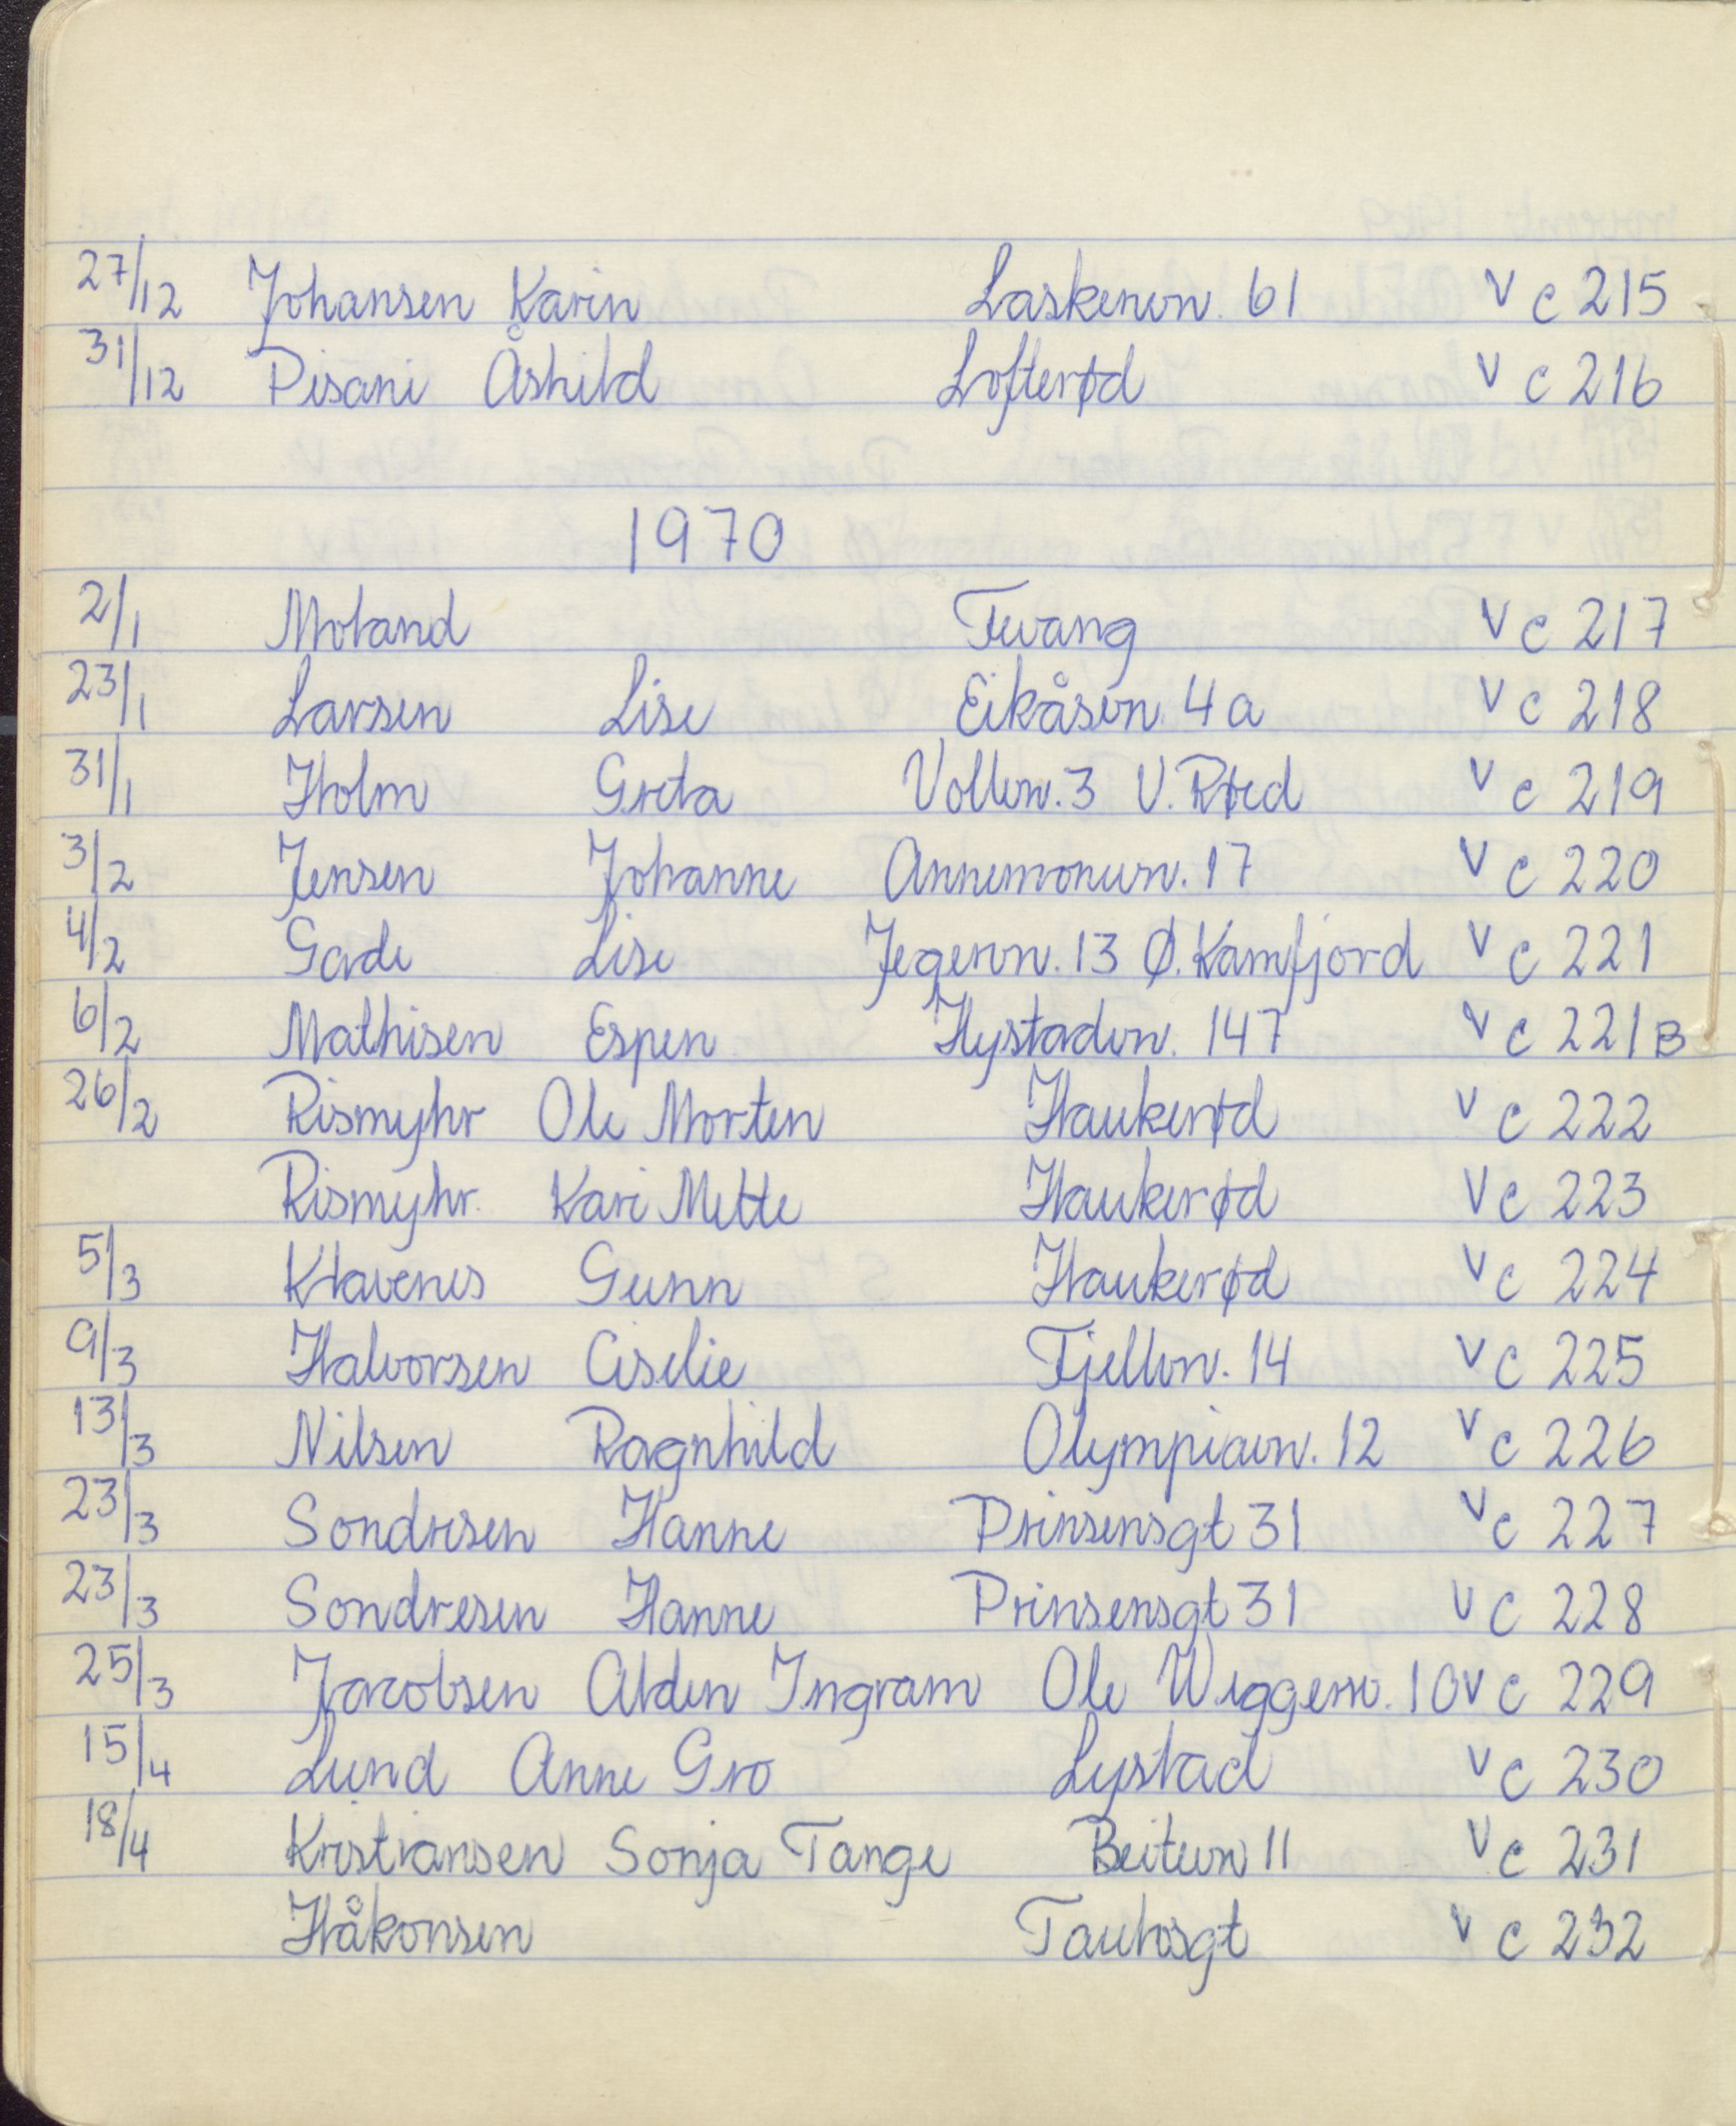 27/12 Johansen Karin Laskenvn. 61 V C 215
31/12 Pisani Åshild Lofterød V C 216
1970
2/1 Moland Tevang V C 217
23/1 Larsen Lise Eikåsvn. 4a V C 218
31/1 Holm Greta Vollvn. 3 V. Røed V C 219
3/2 Jensen Johanne Annemonevn. 17 V C 220
4/2 Gade Lise Jegervn. 13 Ø. Kamfjord V C 221
6/2 Mathisen Espen Hystadvn. 147 V C 221 B
26/2 Rismyhr Ole Morten Haukerød V C 222
Rismyhr. Kari Mette Haukerød V C 223
5/3 Klavenes Gunn Haukerød V C 224
9/3 Halvorsen Ciselie Fjellvn. 14 V C 225
13/3 Nilsen Ragnhild Olympiavn. 12 V C 226
23/3 Sondresen Hanne Prinsensgt 31 V C 227
23/3 Sondresen Hanne Prinsensgt 31 V C 228
25/3 Jacobsen Alden Ingram Ole Weggerv. 10 V C 229
15/4 Lund Anne Gro Lystad V C 230
18/4 Kristiansen Sonja Tange Beitevn 11 V C 231
Håkonsen V C 232